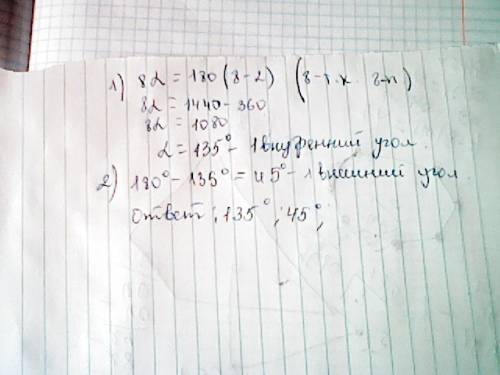 1) 8α = 180 (8-2) (8-т.к. 8-к)
8α = 1440 - 360
8α = 1080
α = 135° - 1 внутренний угол.
2) 180° - 135° = 45° - 1 внешний угол
ответ: 135°; 45°;